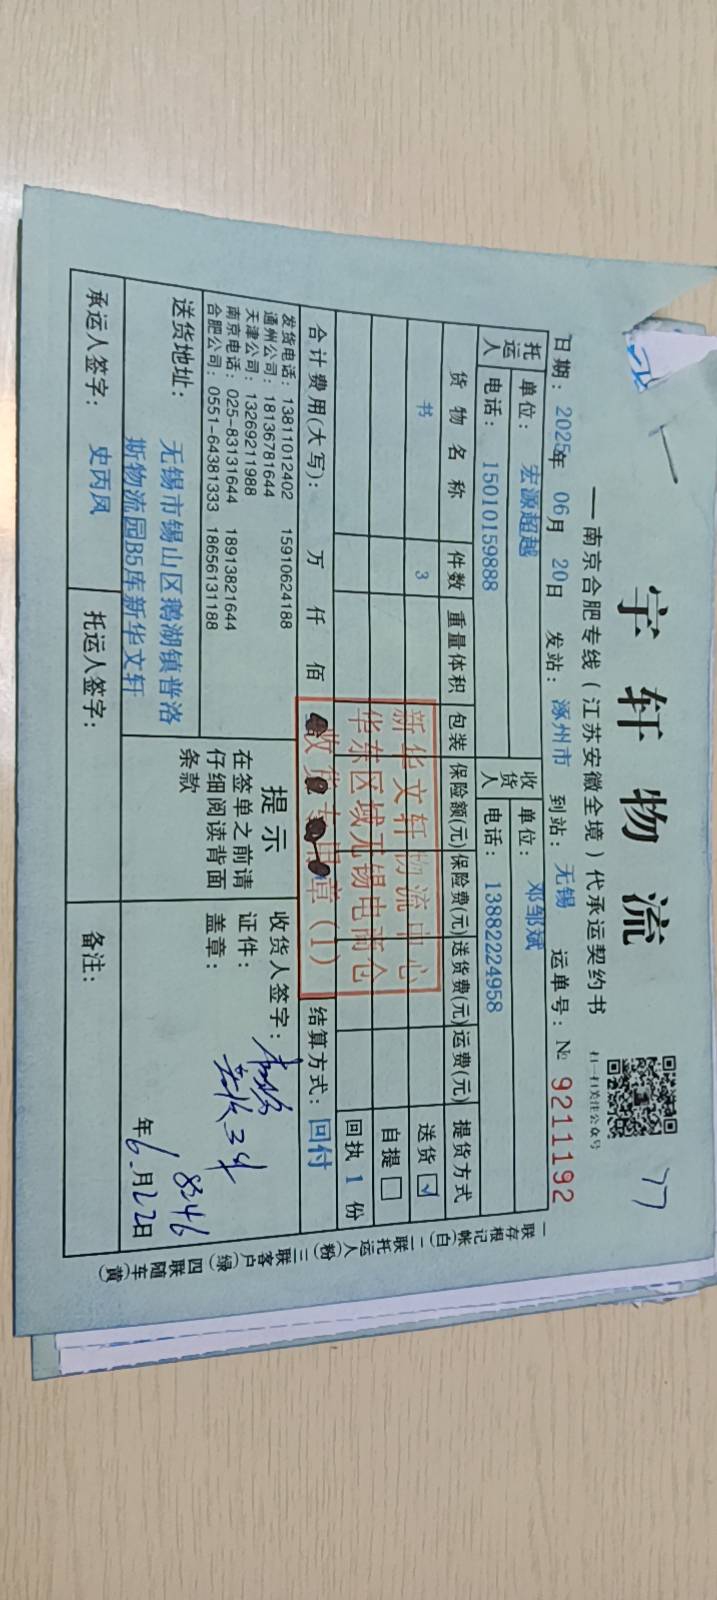 宇轩物流
77
——南京合肥专线（江苏安徽全境）代承运契约书
扫一扫关注公众号
日期：2025年 06月 20日 发站：涿州市 到站：无锡 运单号：№ 9211192
托运人 单位：宏源超越 收货人 单位：邓邹斌
电话：15010159888 电话：13882224958
货物名称 件数 重量体积 包装 保险额(元) 保险费(元) 送货费(元) 运费(元) 提货方式
书 3 送货☑
自提□
回执 1 份
合计费用(大写)： 万 仟 佰 结算方式：回付
新华文轩物流中心
华东区域无锡电商仓
收货专用章(1)
发货电话：13811012402 15910624188
通州公司：18136781644
天津公司：13269211988
南京电话：025-83131644 18913821644
合肥公司：0551-64381333 18656131188
提示
在签单之前请
仔细阅读背面
条款
收货人签字：
证件：
盖章：
实收3件
8346
年6月22日
送货地址：无锡市锡山区鹅湖镇普洛
斯物流园B5库新华文轩
承运人签字：史丙凤 托运人签字： 备注：
一联存根记帐(白) 二联托运人(粉) 三联客户(绿) 四联随车(黄)